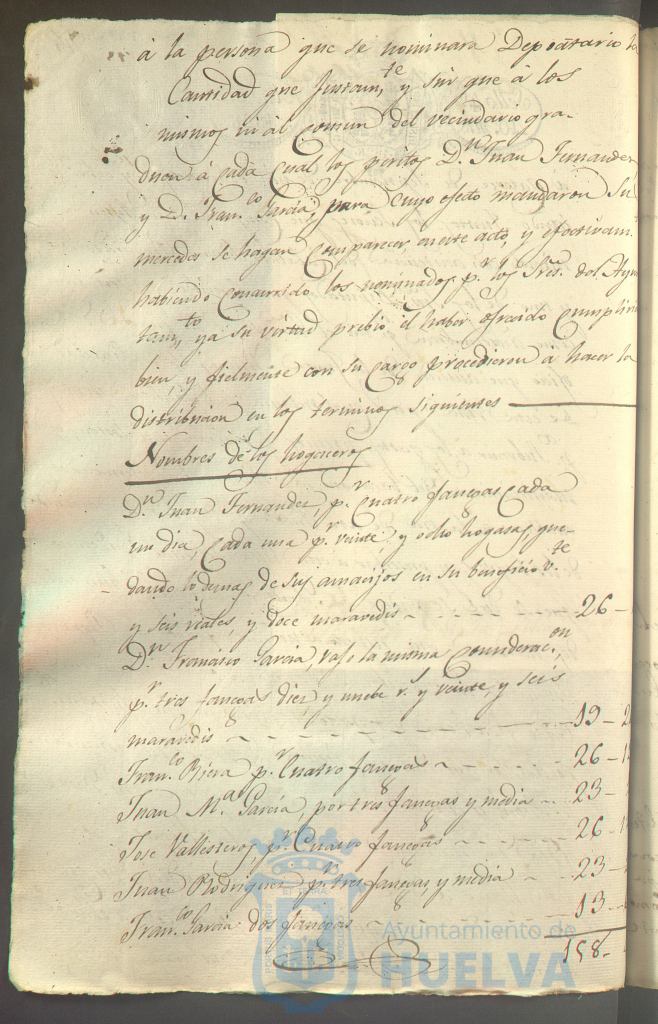 á la persona que se nominara Depositario la
Cantidad que Juntan,te y sin que á los
mismos ni al comun del vecindario gra-
duen á cada Cual los peritos Dn. Juan Fernandez
y D. Fran.co Garcia, para Cuyo efecto mandaron Su
mercedes se hagan Comparecer en este acto, y efectivam.
habiendo Concurrido los nominados p.r los Sres. del Ayun
tam,to y a su virtud prebio el haber ofrecido Cumplir
bien, y fielmente con su Cargo procedieron á hacer la
distribucion en los terminos siguientes
Nombres de los hogaceros
Dn. Juan Fernandez, p.r Cuatro fanegas Cada
un dia, Cada una p.r veinte, y ocho hogasas, que-
dando lo demas de sus amacijos en su beneficio v.te
y seis reales, y doce maravedis - - - 26 -
Dn. Francisco Garcia, vajo la misma Considerac.on
p.r tres fanegas diez, y nuebe r.s y veinte, y seis
maravedis - - - 19 - 2
Fran.co Riera p.r Cuatro fanegas - - - 26 - 1
Juan M.a Garcia, por tres fanegas y media - - 23 -
Jose Vallesteros, p.r Cuatro fanegas - - - 26 - 1
Juan Rodriguez p.r tres fanegas y media - - 23 -
Fran.co Garcia dos fanegas - - - 13 -
158 -
Ayuntamiento de
HUELVA